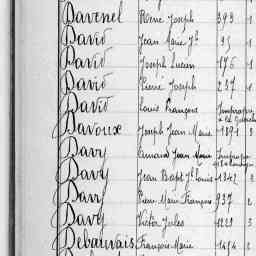 Davenel Pierre Joseph 393 1
David Jean Marie Jh 95 1
David Joseph Lucien 176 1
David Pierre Joseph 237 1
David Louis François Impropre
Davoux Joseph Jean Marie 1891 3
Davy Amand Jean Marie Impropre
Davy Jean Bapt. Jh Louis 1342 3
Davy Pierre Marie François 937 2
Davy Victor Jules 1228 3
Debauvais François Marie 1414 2